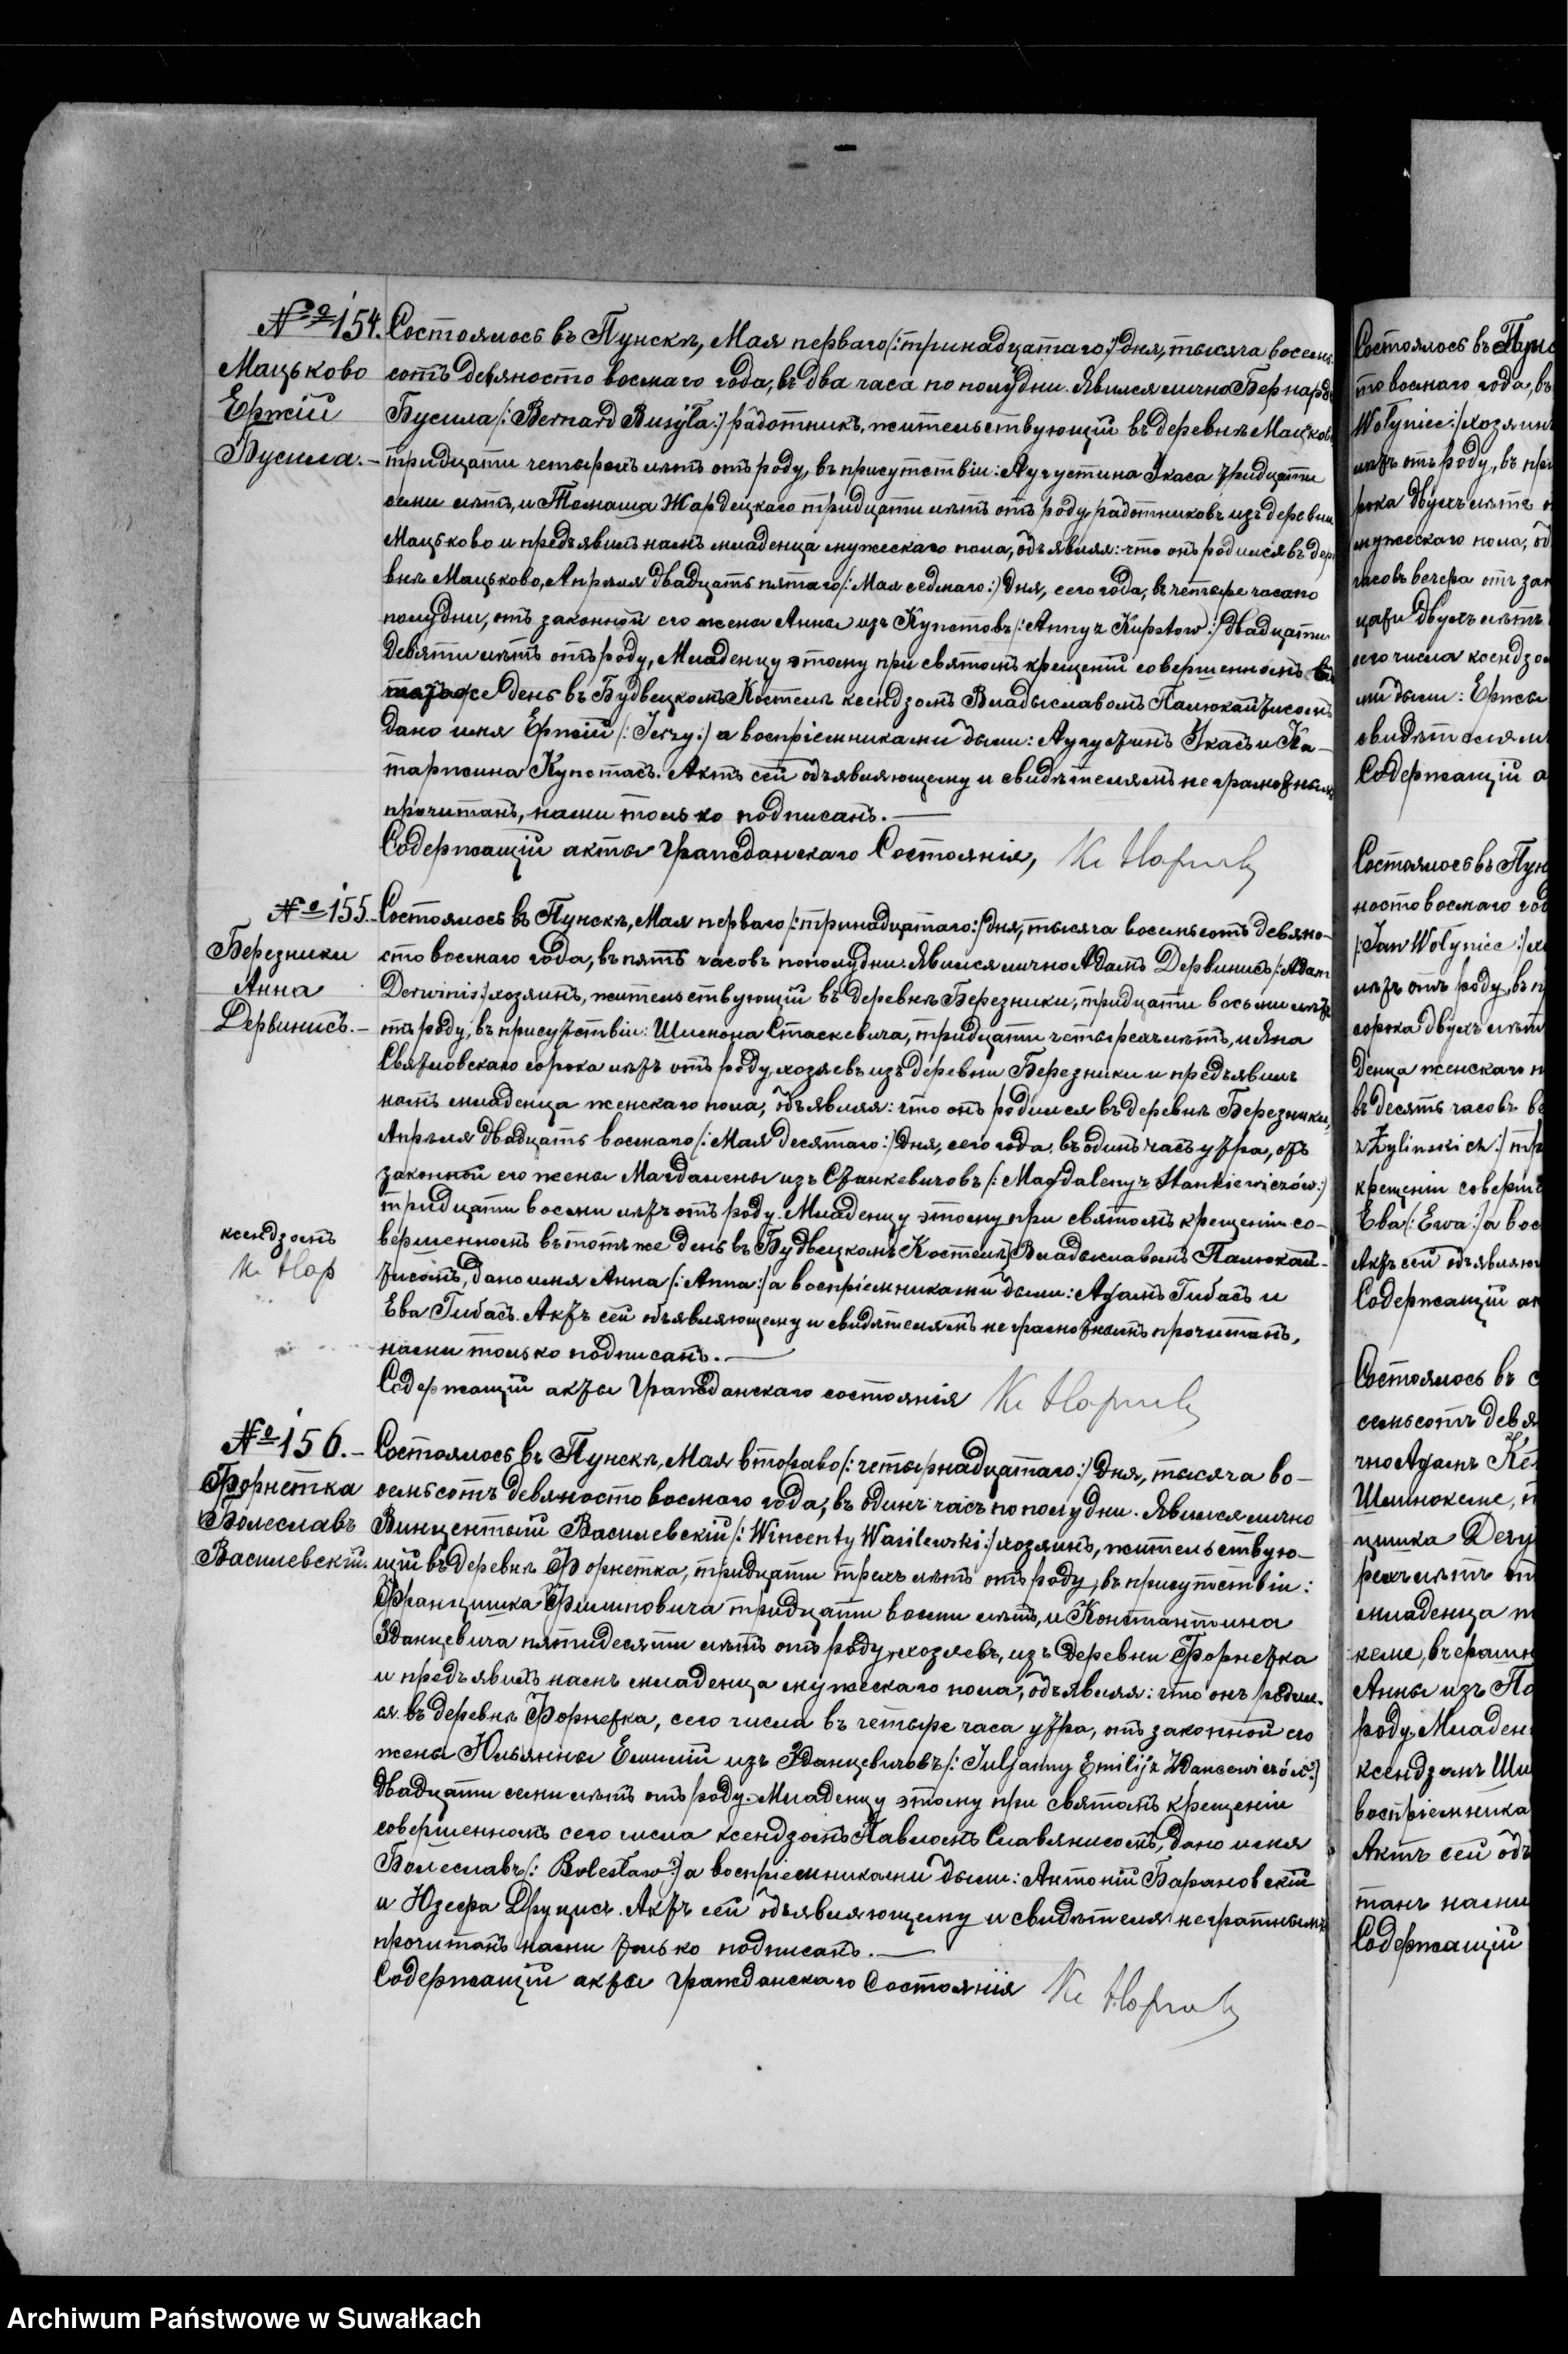 № 154.
Мацьково
Ержій
Бусила.—
Состоялось въ Пунскѣ, Мая перваго /:тринадцатаго:/ дня, тысяча восемь-
сотъ девяносто восмаго года, въ два часа по полудни. Явился лично Бернардъ
Бусила /: Bernard Busyła:/ работникъ, жительствующій въ деревнѣ Мацьково
тридцати четырехъ лѣтъ отъ роду, въ присутствіи: Аугустина Укаса тридцати
семи лѣтъ, и Томаша Жардецкаго тридцати лѣтъ отъ роду работниковъ изъ деревни
Мацьково и предъявилъ намъ младенца мужескаго пола, объявляя: что онъ родился въ дере
внѣ Мацьково, Апрѣля двадцать пятаго /: Мая седмаго:/ дня, сего года, въ четыре часа по
полудни, отъ законной его жены Анны изъ Купстовъ /: Anny z Kupstow:/ двадцати
девяти лѣтъ отъ роду, Младенцу этому при святомъ крещеніи совершенномъ въ
тотъ же день въ Будвецкомъ Костелѣ ксендзомъ Владыславомъ Палюкайтисомъ
дано имя Ержій /: Jerzy:/ а воспріемниками были: Аугустинъ Укасъ и Ка-
таржина Купстасъ. Актъ сей объявляющему и свидѣтелямъ неграмотнымъ
прочитанъ, нами только подписанъ.—
Содержащій акты Гражданскаго Состоянія,
№ 155.
Березники
Анна
Дервинисъ.—
Состоялось въ Пунскѣ, Мая перваго /:тринадцатаго:/ дня, тысяча восемьсотъ девяно-
сто восмаго года, въ пять часовъ пополудни. Явился лично Адамъ Дервинисъ /: Adam
Derwinis:/ хозяинъ, жительствующій въ деревнѣ Березники, тридцати восьми лѣтъ
отъ роду, въ присутствіи: Шимона Стаскевича, тридцати четырехъ лѣтъ, и Яна
Святловскаго сорока лѣтъ отъ роду, хозяевъ изъ деревни Березники и предъявилъ
намъ младенца женскаго пола, объявляя: что онъ родился въ деревнѣ Березники,
Апрѣля двадцать восмаго /: Мая десятаго:/ дня, сего года, въ одинъ часъ утра, отъ
законной его жены Магдалены изъ Станкевичовъ /: Magdaleny z Stankiewiczów:/
тридцати восми лѣтъ отъ роду. Младенцу этому при святомъ крещеніи со-
вершенномъ въ тотъ же день въ Будвецкомъ Костелѣ Владыславомъ Палюкай-
тисомъ, дано имя Анна /: Anna:/ а воспріемниками были: Адамъ Гибасъ и
Ева Гибасъ. Актъ сей объявляющему и свидѣтелямъ неграмотнымъ прочитанъ,
нами только подписанъ.—
Содержащій акты Гражданскаго состоянія
ксендзомъ
№ 156.—
Форнетка
Болеславъ
Василевскій.
Состоялось въ Пунскѣ, Мая втораво /: четырнадцатаго:/ дня, тысяча во-
семьсотъ девяносто восмаго года, въ одинъ часъ пополудни. Явился лично
Винцентый Василевскій /: Wincenty Wasilewski:/ хозяинъ, жительствую-
щій въ деревнѣ Форнетка, тридцати трехъ лѣтъ отъ роду, въ присутствіи:
Францишка Филиповича тридцати восми лѣтъ, и Константина
Зданцевича пятидесяти лѣтъ отъ роду, хозяевъ, изъ деревни Форнетка
и предъявилъ намъ младенца мужескаго пола, объявляя: что онъ родил-
ся въ деревнѣ Форнетка, сего числа въ четыре часа утра, отъ законной его
жены Юльянны Емилій изъ Зданцевичовъ /: Juljanny Emilij z Zdancewiczów:/
двадцати семи лѣтъ отъ роду. Младенцу этому при святомъ крещеніи
совершенномъ сего числа ксендзомъ Павломъ Славянисомъ, дано имя
Болеславъ /: Bolesław:/ а воспріемниками были: Антоній Барановскій
и Юзефа Друцисъ. Актъ сей объявляющему и свидѣтеля негратнымъ
прочитанъ нами только подписанъ.—
Содержащій акты Гражданскаго Состоянія
Состоялось въ
то восмаго года, въ
Wołyniec:/ хозяинъ
лѣтъ отъ роду, въ при
рока двухъ лѣтъ о
мужескаго пола, об
часовъ вечера отъ зак
цати двухъ лѣтъ
сего числа ксендзо
ми были: Ержы
свидѣтелям
Содержащій а
Состоялось въ Пун
носто восмаго год
/: Jan Wołyniec:/ хо
лѣтъ отъ роду, въ п
сорока двухъ лѣтъ
денца женскаго п
въ десять часовъ ве
z Zylinskich:/ тр
крещеніи соверше
Ева /: Ewa:/ а вос
Актъ сей объявляю
Содержащій ак
Состоялось въ
семьсотъ девя
чно Адамъ
цишка
рехъ лѣтъ от
младенца
кеме, вчерашн
Анны изъ
роду. Младен
ксендзомъ
воспріемника
Актъ сей объ
танъ нами
Содержащій
Archiwum Państwowe w Suwałkach